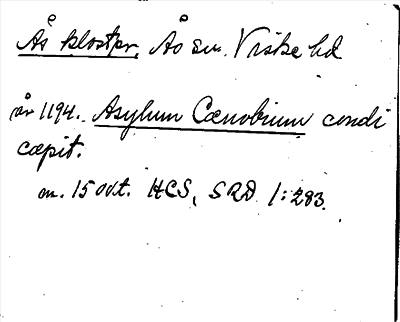 Ås kloster, Ås sn. Viske hd
år 1194. Asylum Cænobium condi
cæpit.
m. 15 oct. HCS, SRD 1:283.